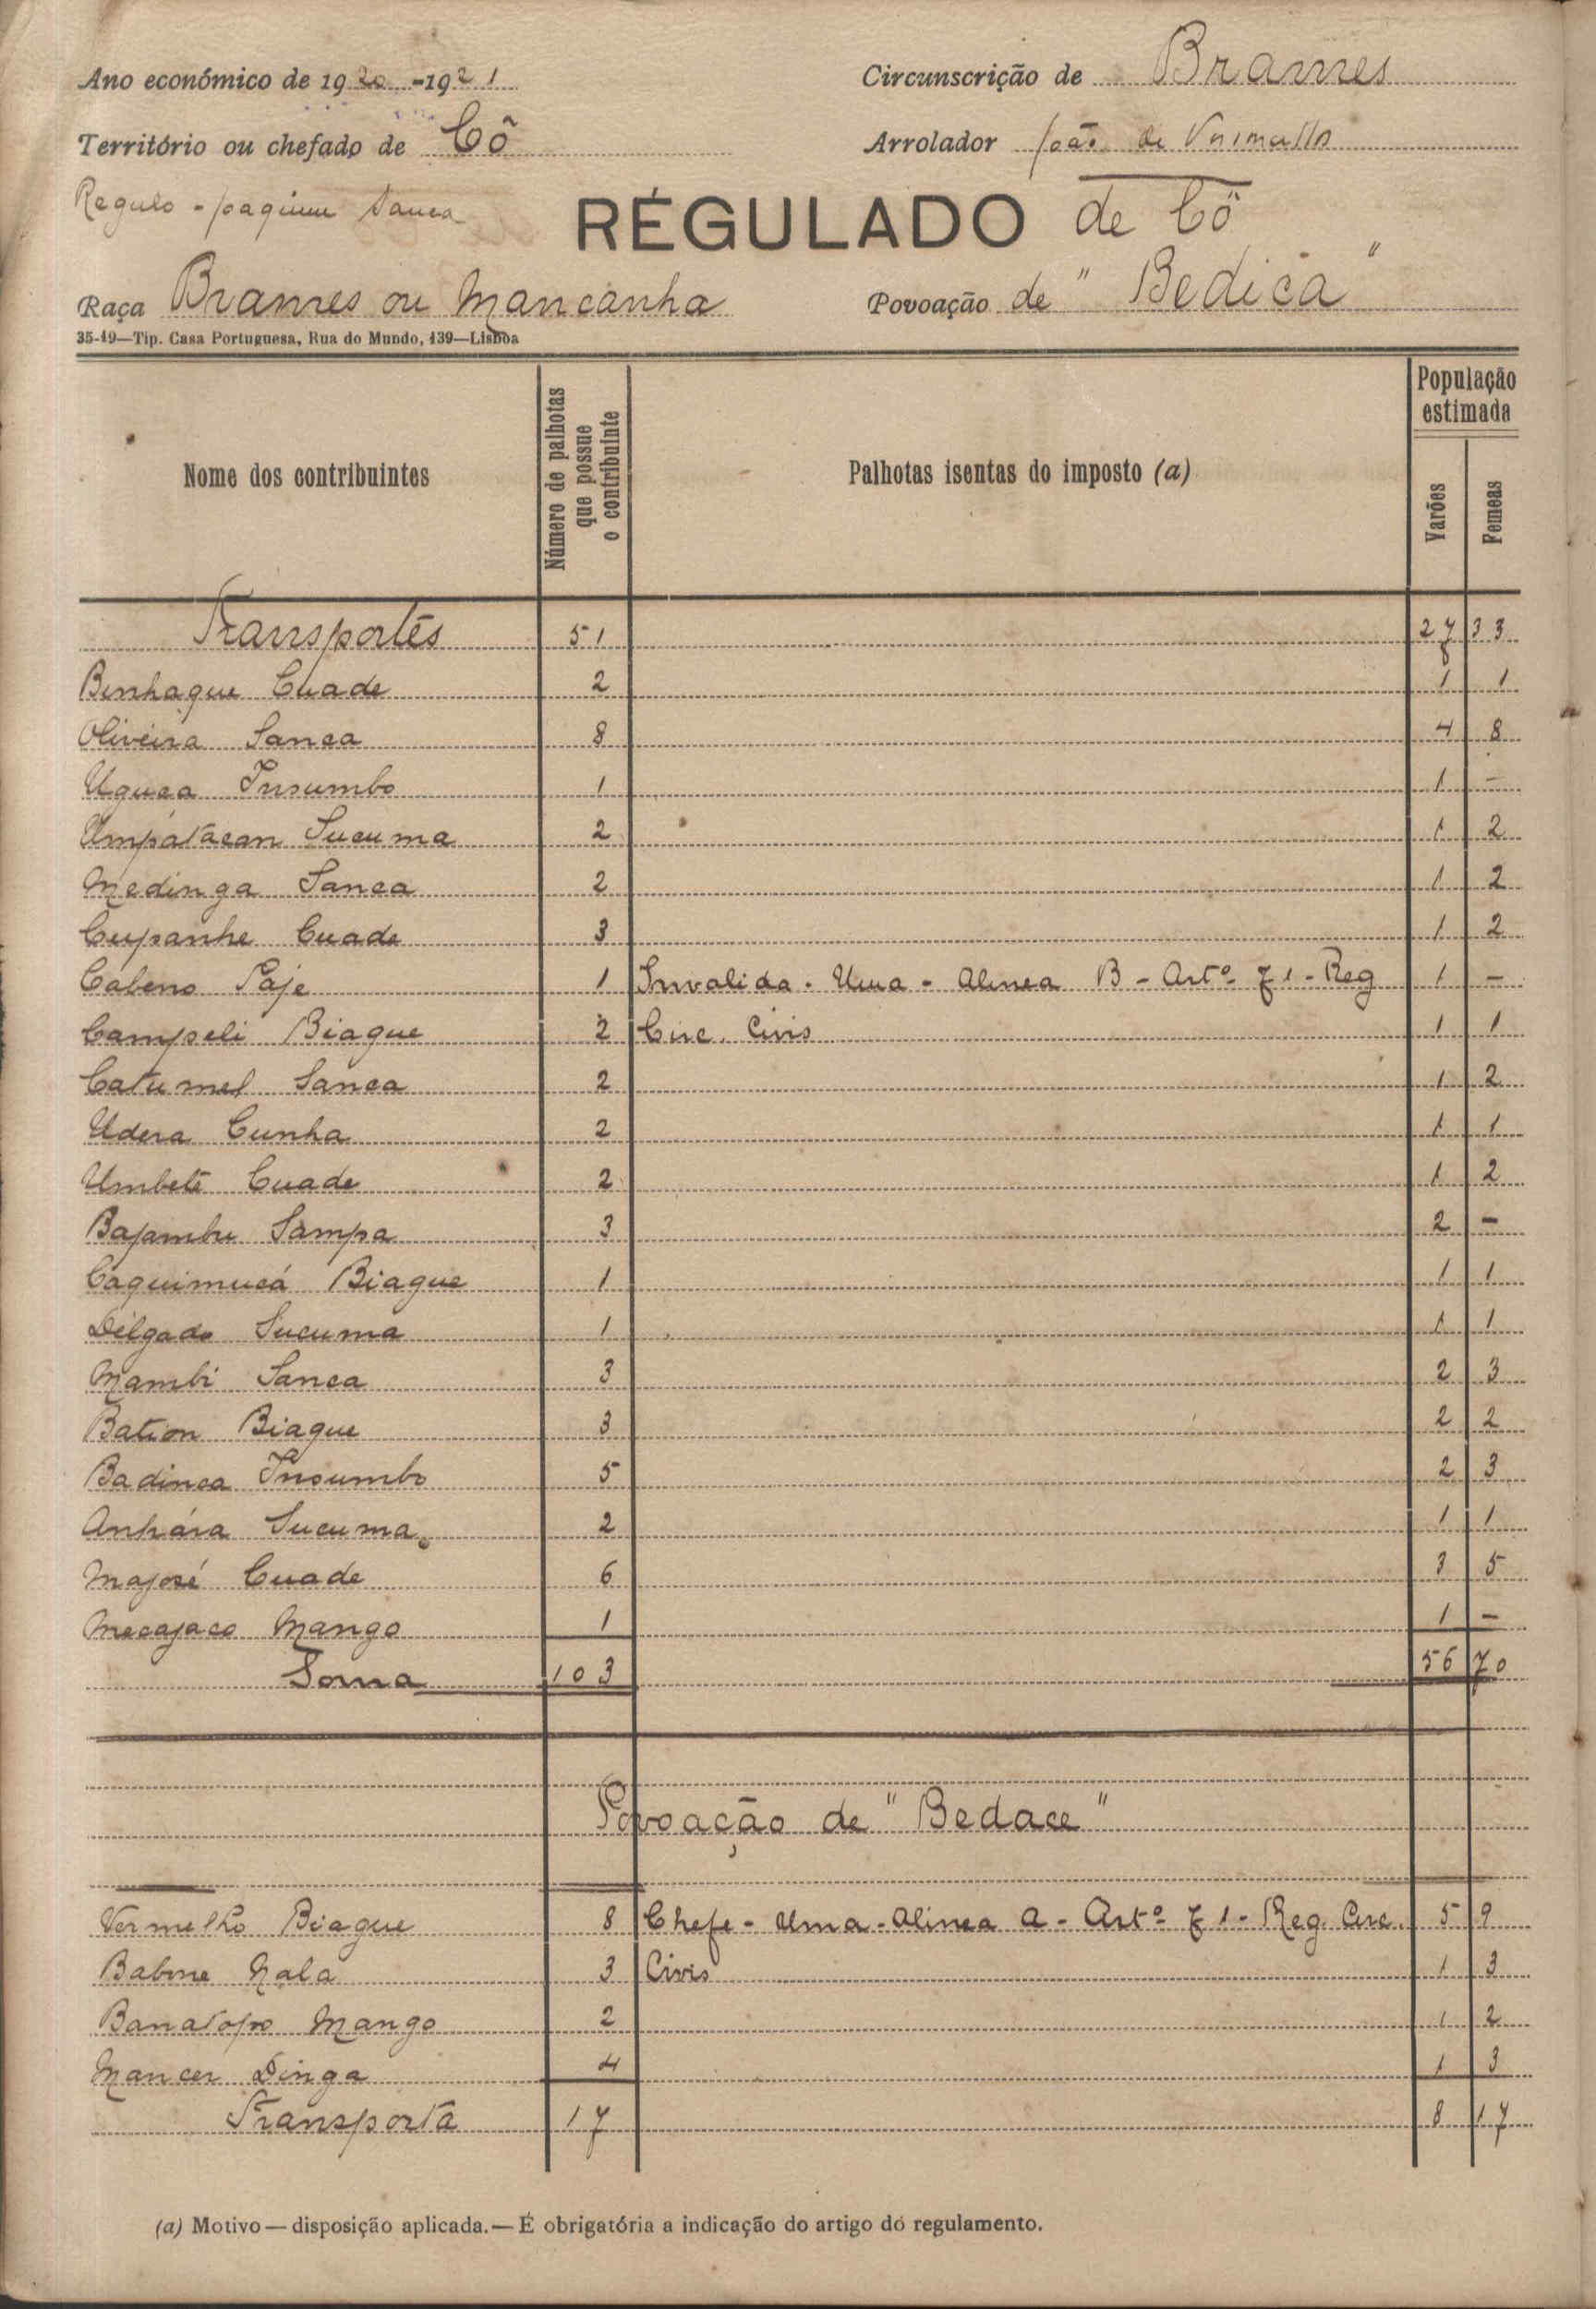 Ano económico de 1920-1921 Circunscrição de Brames
Território ou chefado de Cô Arrolador João de
Regulo - Joaquim Sanca RÉGULADO de Cô
Raça Brames ou Mancanha Povoação de "Bedica"
35-19—Tip. Casa Portuguesa, Rua do Mundo, 139—Lisboa
Nome dos contribuintes Número de palhotas que possue o contribuinte Palhotas isentas do imposto (a) População estimada Varões Femeas
Transportes 51 27 33
Binhaque Cuade 2 1 1
Oliveira Sanca 8 4 8
Uguca Insumbo 1 1 -
Umpatacan Sucuma 2 1 2
Medinga Sanca 2 1 2
Cupanhe Cuade 3 1 2
Cabeno Paje 1 Invalida - Uma - Alinea B - Artº 71 - Reg 1 -
Campeli Biague 2 Circ. Civis 1 1
Catumel Sanca 2 1 2
Udera Cunha 2 1 1
Umbeté Cuade 2 1 2
Bajambu Sampa 3 2 -
Caquimucá Biague 1 1 1
Delgado Sucuma 1 1 1
Mambi Sanca 3 2 3
Bation Biague 3 2 2
Badinca Insumbo 5 2 3
Anhára Sucuma 2 1 1
Majosé Cuade 6 3 5
Mecajaco Mango 1 1 -
Soma 103 56 70
Povoação de "Bedace"
Vermelho Biague 8 Chefe - Uma - Alinea A - Artº 71 - Reg. Circ. 5 9
Babine Nala 3 Civis 1 3
Banatopo Mango 2 1 2
Mancer Dinga 4 1 3
Transporta 17 8 17
(a) Motivo—disposição aplicada.—É obrigatória a indicação do artigo do regulamento.